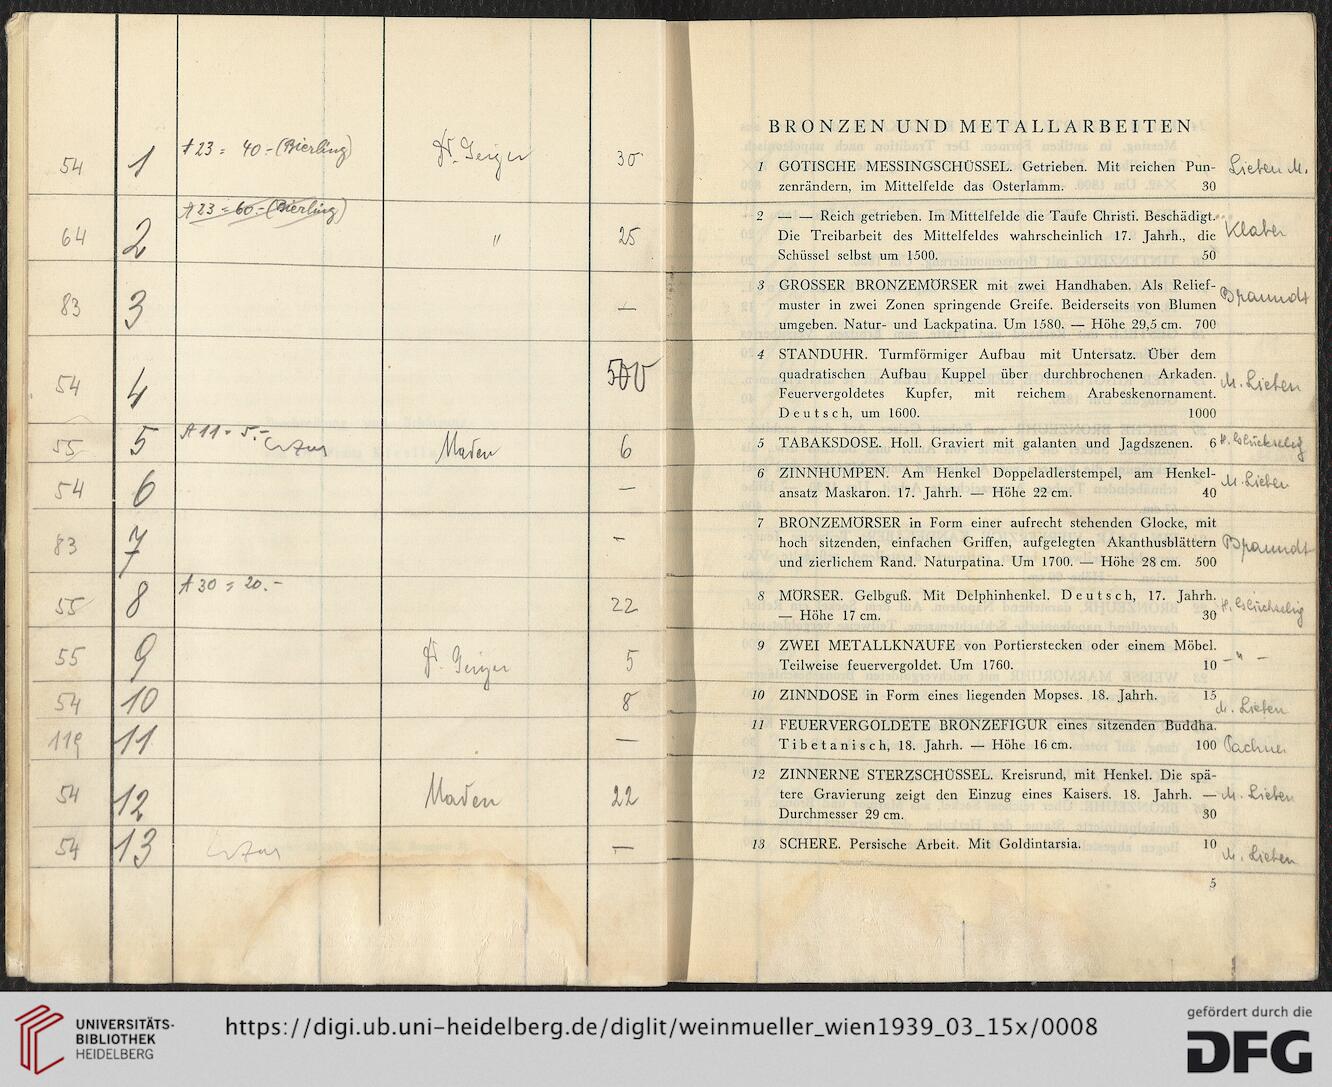 54 1 A 23 = 40.- (Bierling) Dr. Geiger 30
64 2 A 23 = 60.- (Bierling) " 25
83 3 —
54 4 500
55 5 A 11 = 5.- Maden 6
54 6 —
83 7 -
55 8 A 30 = 20.- 22
55 9 Dr. Geiger 5
54 10 8
119 11 —
54 12 Maden 22
54 13 —
BRONZEN UND METALLARBEITEN
1 GOTISCHE MESSINGSCHÜSSEL. Getrieben. Mit reichen Pun-
zenrändern, im Mittelfelde das Osterlamm. 30
Lieben M.
2 — — Reich getrieben. Im Mittelfelde die Taufe Christi. Beschädigt.
Die Treibarbeit des Mittelfeldes wahrscheinlich 17. Jahrh., die
Schüssel selbst um 1500. 50
Klaber
3 GROSSER BRONZEMÖRSER mit zwei Handhaben. Als Relief-
muster in zwei Zonen springende Greife. Beiderseits von Blumen
umgeben. Natur- und Lackpatina. Um 1580. — Höhe 29,5 cm. 700
4 STANDUHR. Turmförmiger Aufbau mit Untersatz. Über dem
quadratischen Aufbau Kuppel über durchbrochenen Arkaden.
Feuervergoldetes Kupfer, mit reichem Arabeskenornament.
Deutsch, um 1600. 1000
M. Lieben
5 TABAKSDOSE. Holl. Graviert mit galanten und Jagdszenen. 6
H. Glückselig
6 ZINNHUMPEN. Am Henkel Doppeladlerstempel, am Henkel-
ansatz Maskaron. 17. Jahrh. — Höhe 22 cm. 40
M. Lieben
7 BRONZEMÖRSER in Form einer aufrecht stehenden Glocke, mit
hoch sitzenden, einfachen Griffen, aufgelegten Akanthusblättern
und zierlichem Rand. Naturpatina. Um 1700. — Höhe 28 cm. 500
8 MÖRSER. Gelbguß. Mit Delphinhenkel. Deutsch, 17. Jahrh.
— Höhe 17 cm. 30
H. Glückselig
9 ZWEI METALLKNÄUFE von Portierstecken oder einem Möbel.
Teilweise feuervergoldet. Um 1760. 10
- " -
10 ZINNDOSE in Form eines liegenden Mopses. 18. Jahrh. 15
M. Lieben
11 FEUERVERGOLDETE BRONZEFIGUR eines sitzenden Buddha.
Tibetanisch, 18. Jahrh. — Höhe 16 cm. 100
Pachner
12 ZINNERNE STERZSCHÜSSEL. Kreisrund, mit Henkel. Die spä-
tere Gravierung zeigt den Einzug eines Kaisers. 18. Jahrh. —
Durchmesser 29 cm. 30
M. Lieben
13 SCHERE. Persische Arbeit. Mit Goldintarsia. 10
M. Lieben
5
UNIVERSITÄTS-
BIBLIOTHEK
HEIDELBERG
https://digi.ub.uni-heidelberg.de/diglit/weinmueller_wien1939_03_15x/0008
gefördert durch die
DFG